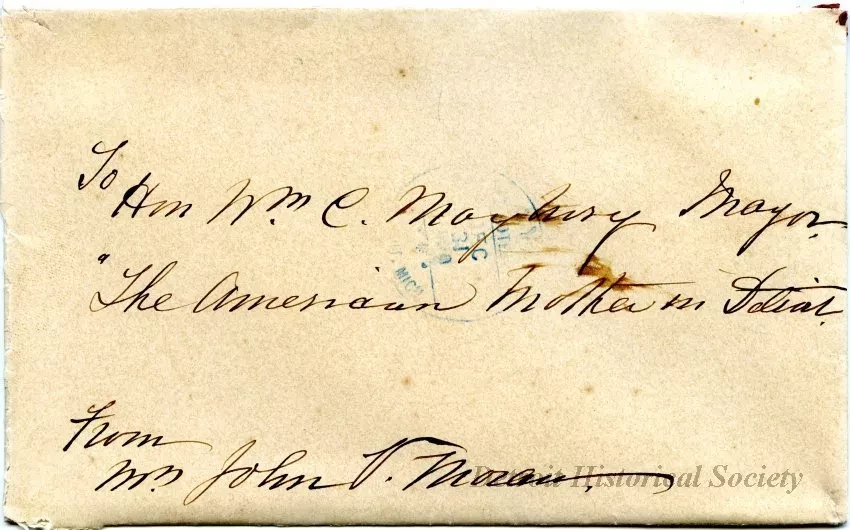 To
Hon Wm C. Maybury Mayor.
"The American Mother in Detroit.
From
Mrs John V. Moran.
Detroit Historical Society
DEC
31
MICH